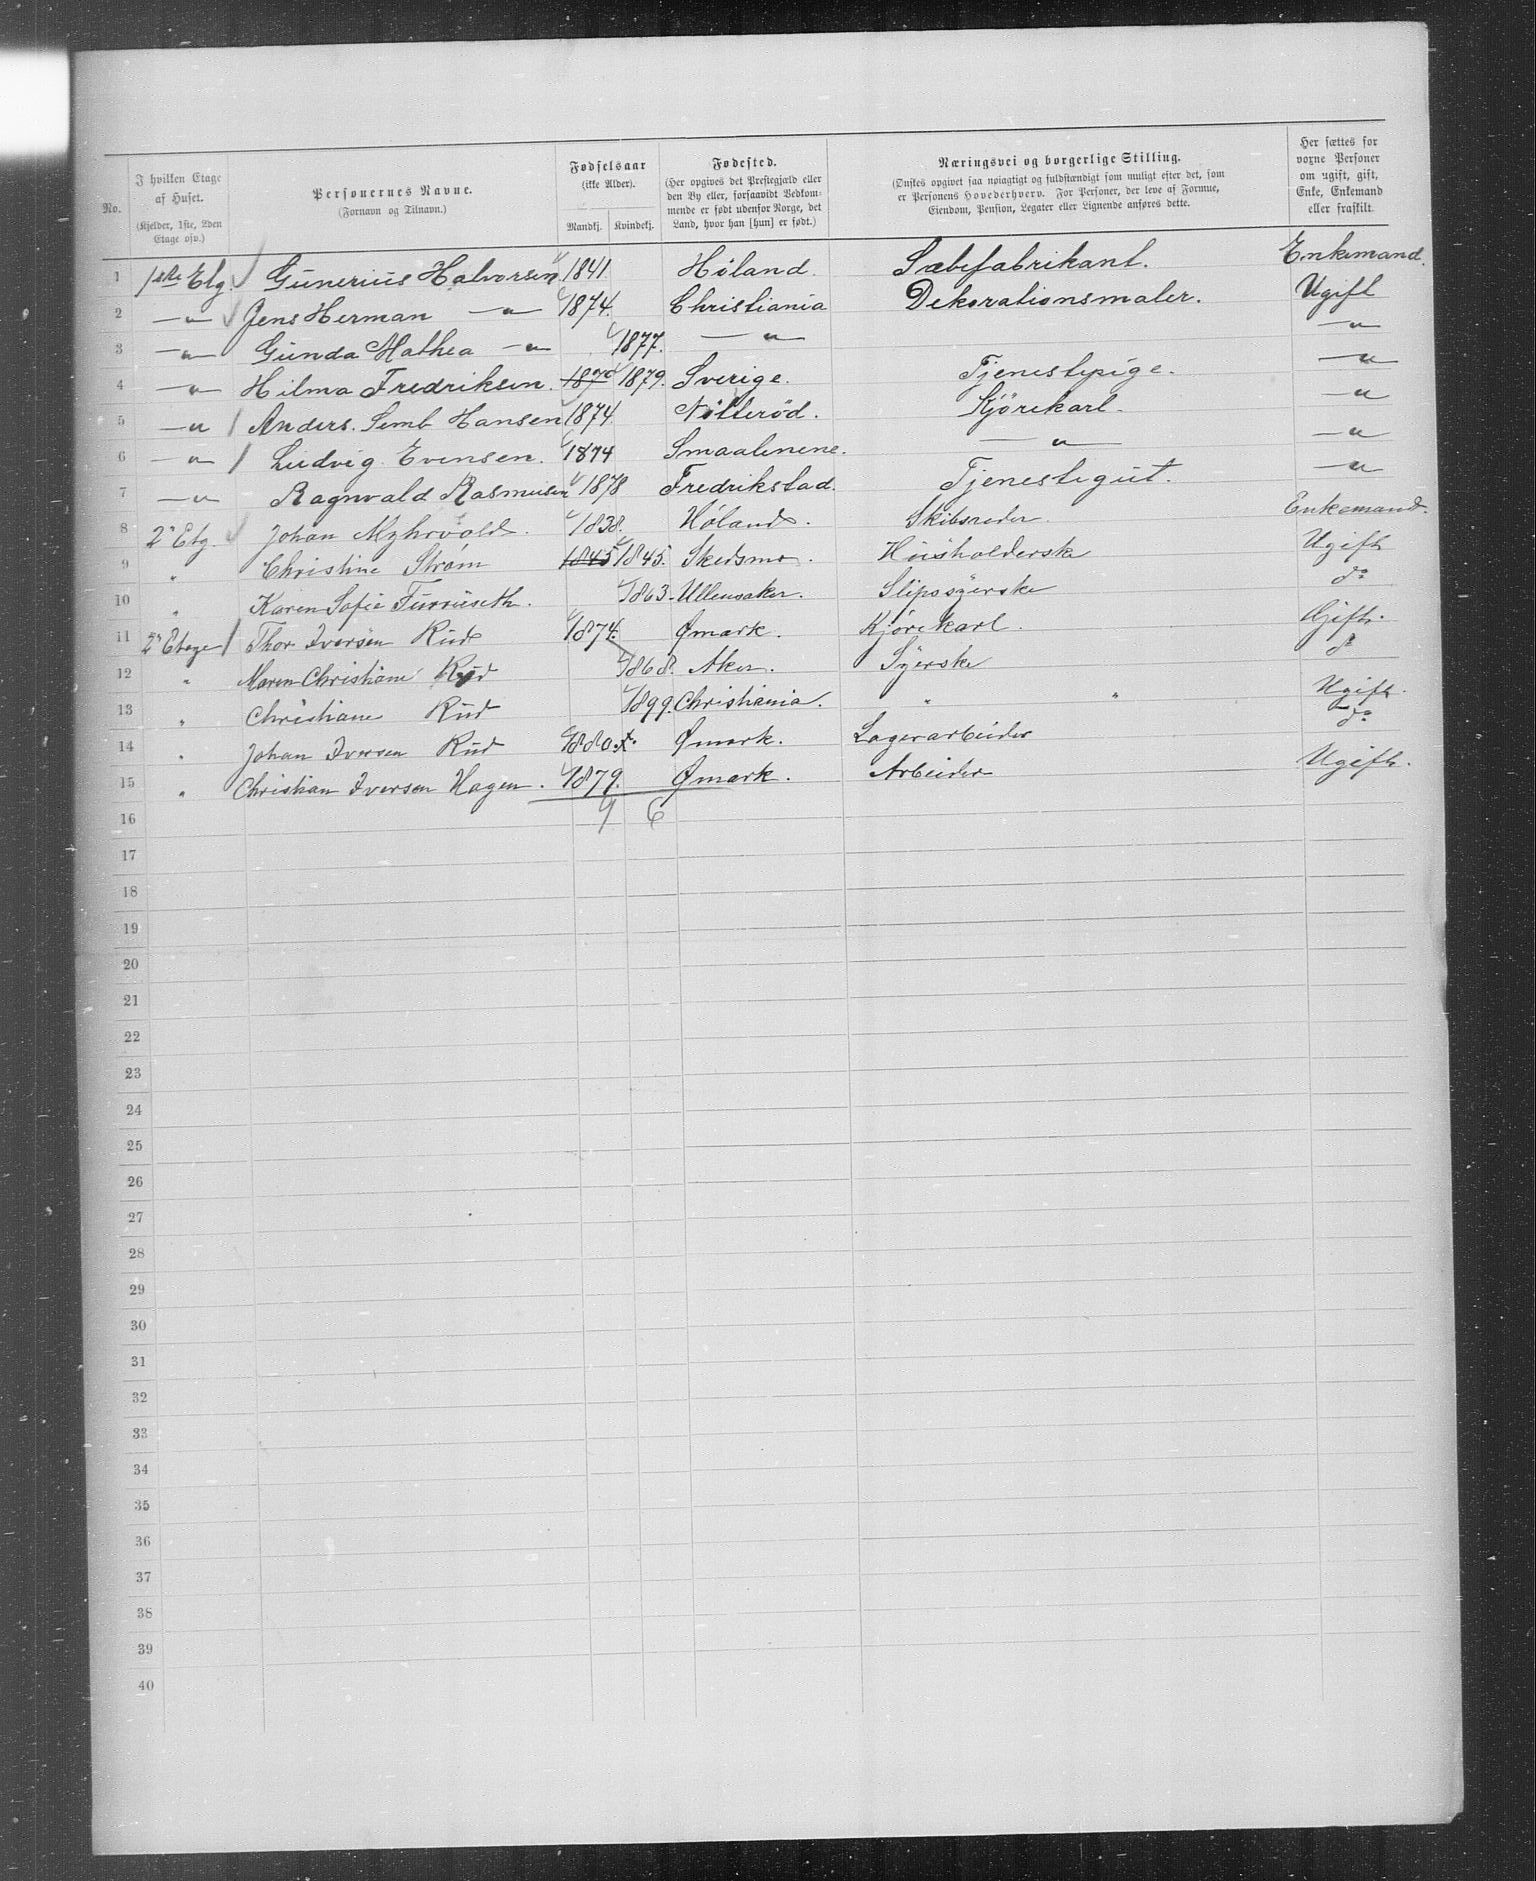 No. I hvilken Etage af Huset. (Kjelder, 1ste, 2den Etage osv.) Personernes Navne. (Fornavn og Tilnavn.) Fødselsaar (ikke Alder). Mandkj. Kvindekj. Fødested. (Her opgives det Prestegjæld eller den By eller, forsaavidt Vedkommende er født udenfor Norge, det Land, hvor han [hun] er født.) Næringsvei og borgerlige Stilling. (Ønskes opgivet saa nøiagtigt og fuldstændigt som muligt efter det, som er Personens Hovederhverv. For Personer, der leve af Formue, Eiendom, Pension, Legater eller Lignende anføres dette. Her sættes for voxne Personer om ugift, gift, Enke, Enkemand eller fraskilt.
1 1ste Etg Gunerius Halvorsen 1841. Høland. Sæbefabrikant. Enkemand.
2 — " — Jens Herman — " — 1874. Christiania Dekorationsmaler. Ugift
3 — " — Gunda Mathea — " — 1877. — " — — " —
4 — " — Hilma Fredriksen. 1879 1879. Sverige. Tjenestepige. — " —
5 — " — Anders. Semb Hansen 1874 Nøtterød. Kjørekarl. — " —
6 — " — Ludvig Evensen. 1874 Smaalenene. — " — — " —
7 — " — Ragnvald Rasmusen 1878 Fredrikstad. Tjenestegut. — " —
8 2" Etg. Johan Myhrvold. 1838. Høland. Skibsreder. Enkemand.
9 " Christine Strøm 1845 1845. Skedsmo. Huusholderske Ugift
10 " Karen Sofie Furruseth. 1863. Ullensaker. Slipssyerske do
11 2" Etage Thor Iversen Rud 1874. Ømark. Kjørekarl. Gift.
12 " Maren Christiane Rud 1868. Aker. Syerske do
13 " Christiane Rud 1899. Christiania. " " Ugift.
14 " Johan Iversen Rud 1880. Ømark. Lagerarbeider do
15 " Christian Iversen Hagen. 1879. Ømark. Arbeider Ugift.
16 9 6
17
18
19
20
21
22
23
24
25
26
27
28
29
30
31
32
33
34
35
36
37
38
39
40